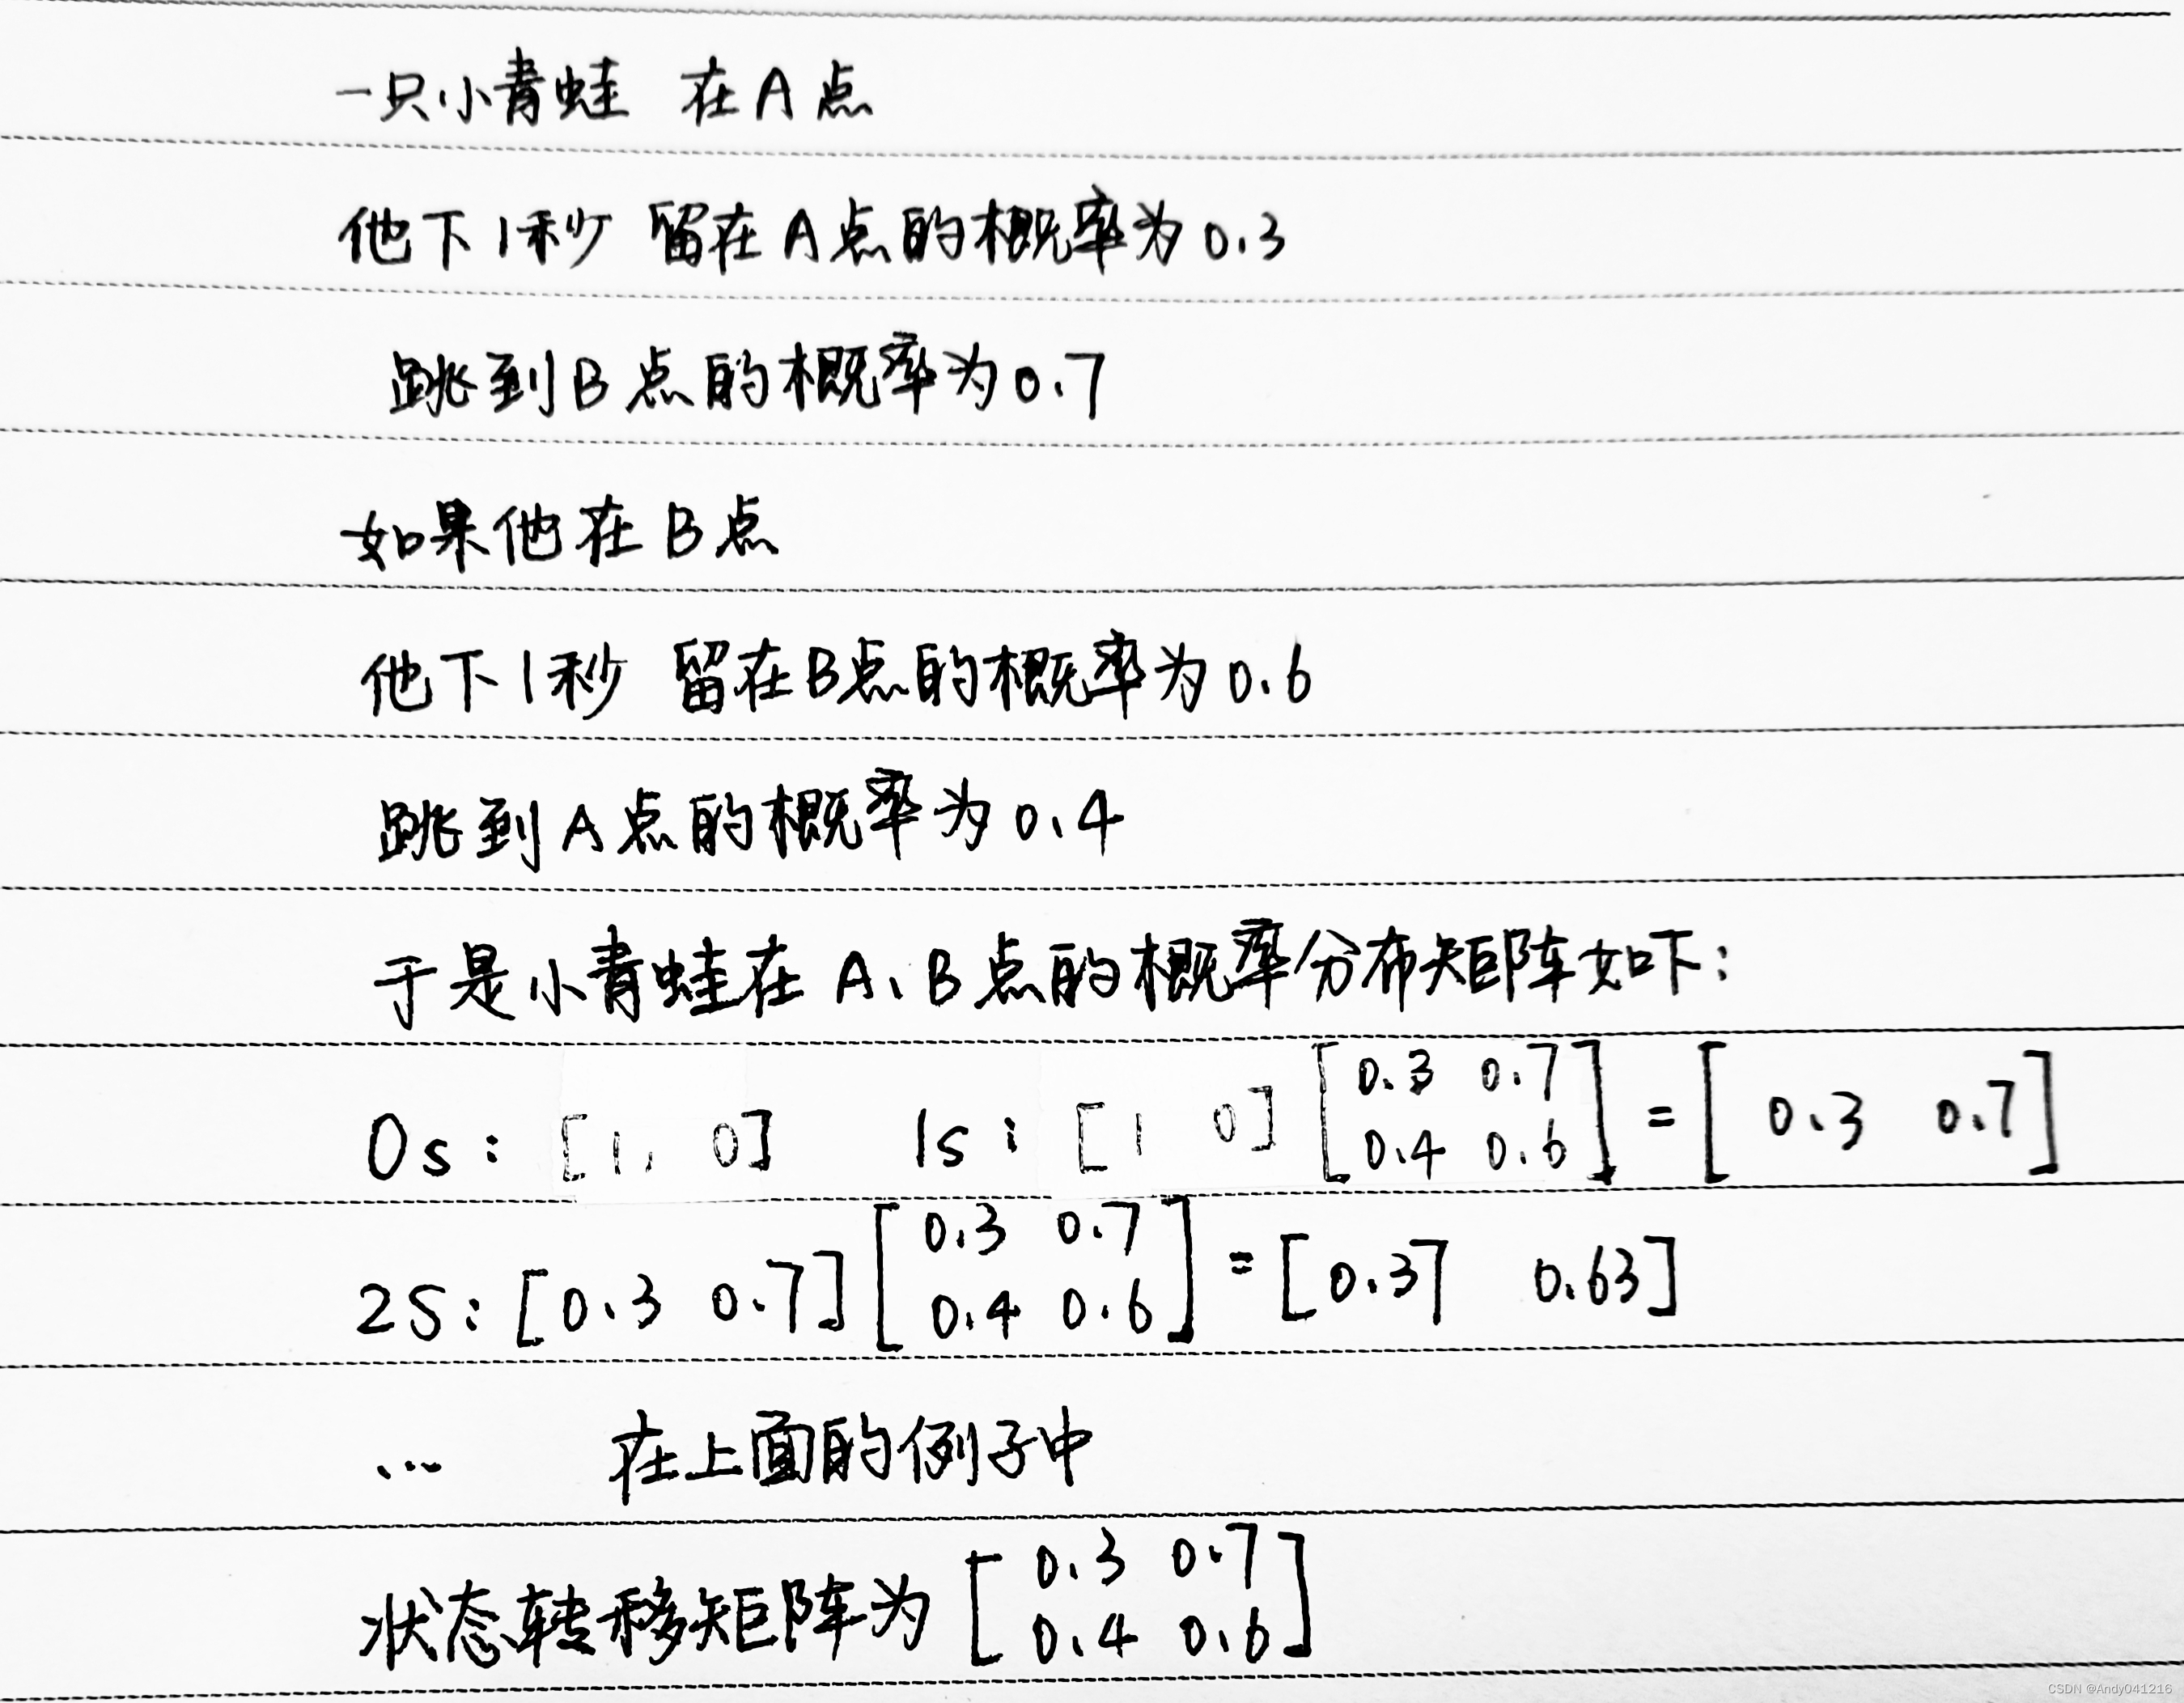 一只小青蛙 在A点
他下1秒 留在A点的概率为0.3
跳到B点的概率为0.7
如果他在B点
他下1秒 留在B点的概率为0.6
跳到A点的概率为0.4
于是小青蛙在 A、B点的概率分布矩阵如下:
0s: [1, 0] 1s: [1 0] [0.3 0.7 0.4 0.6] = [0.3 0.7]
2S: [0.3 0.7] [0.3 0.7 0.4 0.6] = [0.37 0.63]
... 在上面的例子中
状态转移矩阵为 [0.3 0.7 0.4 0.6]
CSDN @Andy041216